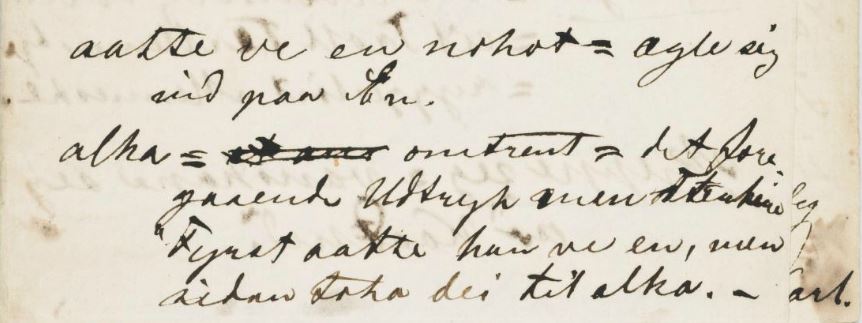 aatte ve en nohot = ægle sig
ind paa En.
alka = omtrent = det fore-
gaaende Udtryk men
"Fyrst aatte han ve en, men
sidan toko dei til alka. –